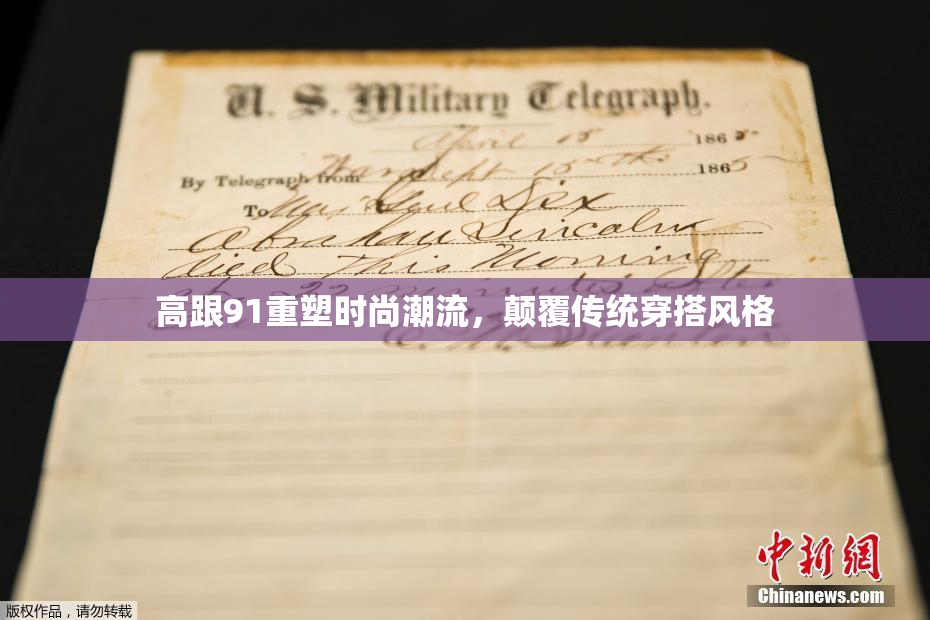 U. S. Military Telegraph.
April 15 1865
By Telegraph from War Dept 15th 1865
To Maj Genl Dix
Abraham Lincoln
died this Morning
at 22 minutes after
高跟91重塑时尚潮流，颠覆传统穿搭风格
E. M. Stanton
中新网
Chinanews.com
版权作品，请勿转载